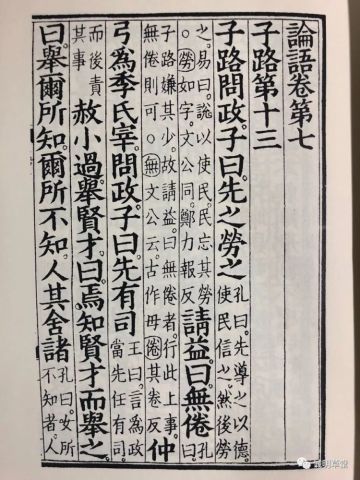 論語卷第七
子路第十三
子路問政。子曰。先之勞之。孔曰。先導之以德。使民信之。然後勞
之。易曰。說以使民。民忘其勞。○勞如字。文公同。鄭力報反。請益。曰。無倦。孔曰。
子路嫌其少。故請益。曰無倦者。行此上事。無倦則可。○無文公云。古作毋。倦其卷反。仲
弓爲季氏宰。問政。子曰。先有司。王曰。言爲政當先任有司。
而後責其事。赦小過。舉賢才。曰。焉知賢才而舉之。
曰。舉爾所知。爾所不知。人其舍諸。孔曰。女所不知者。人